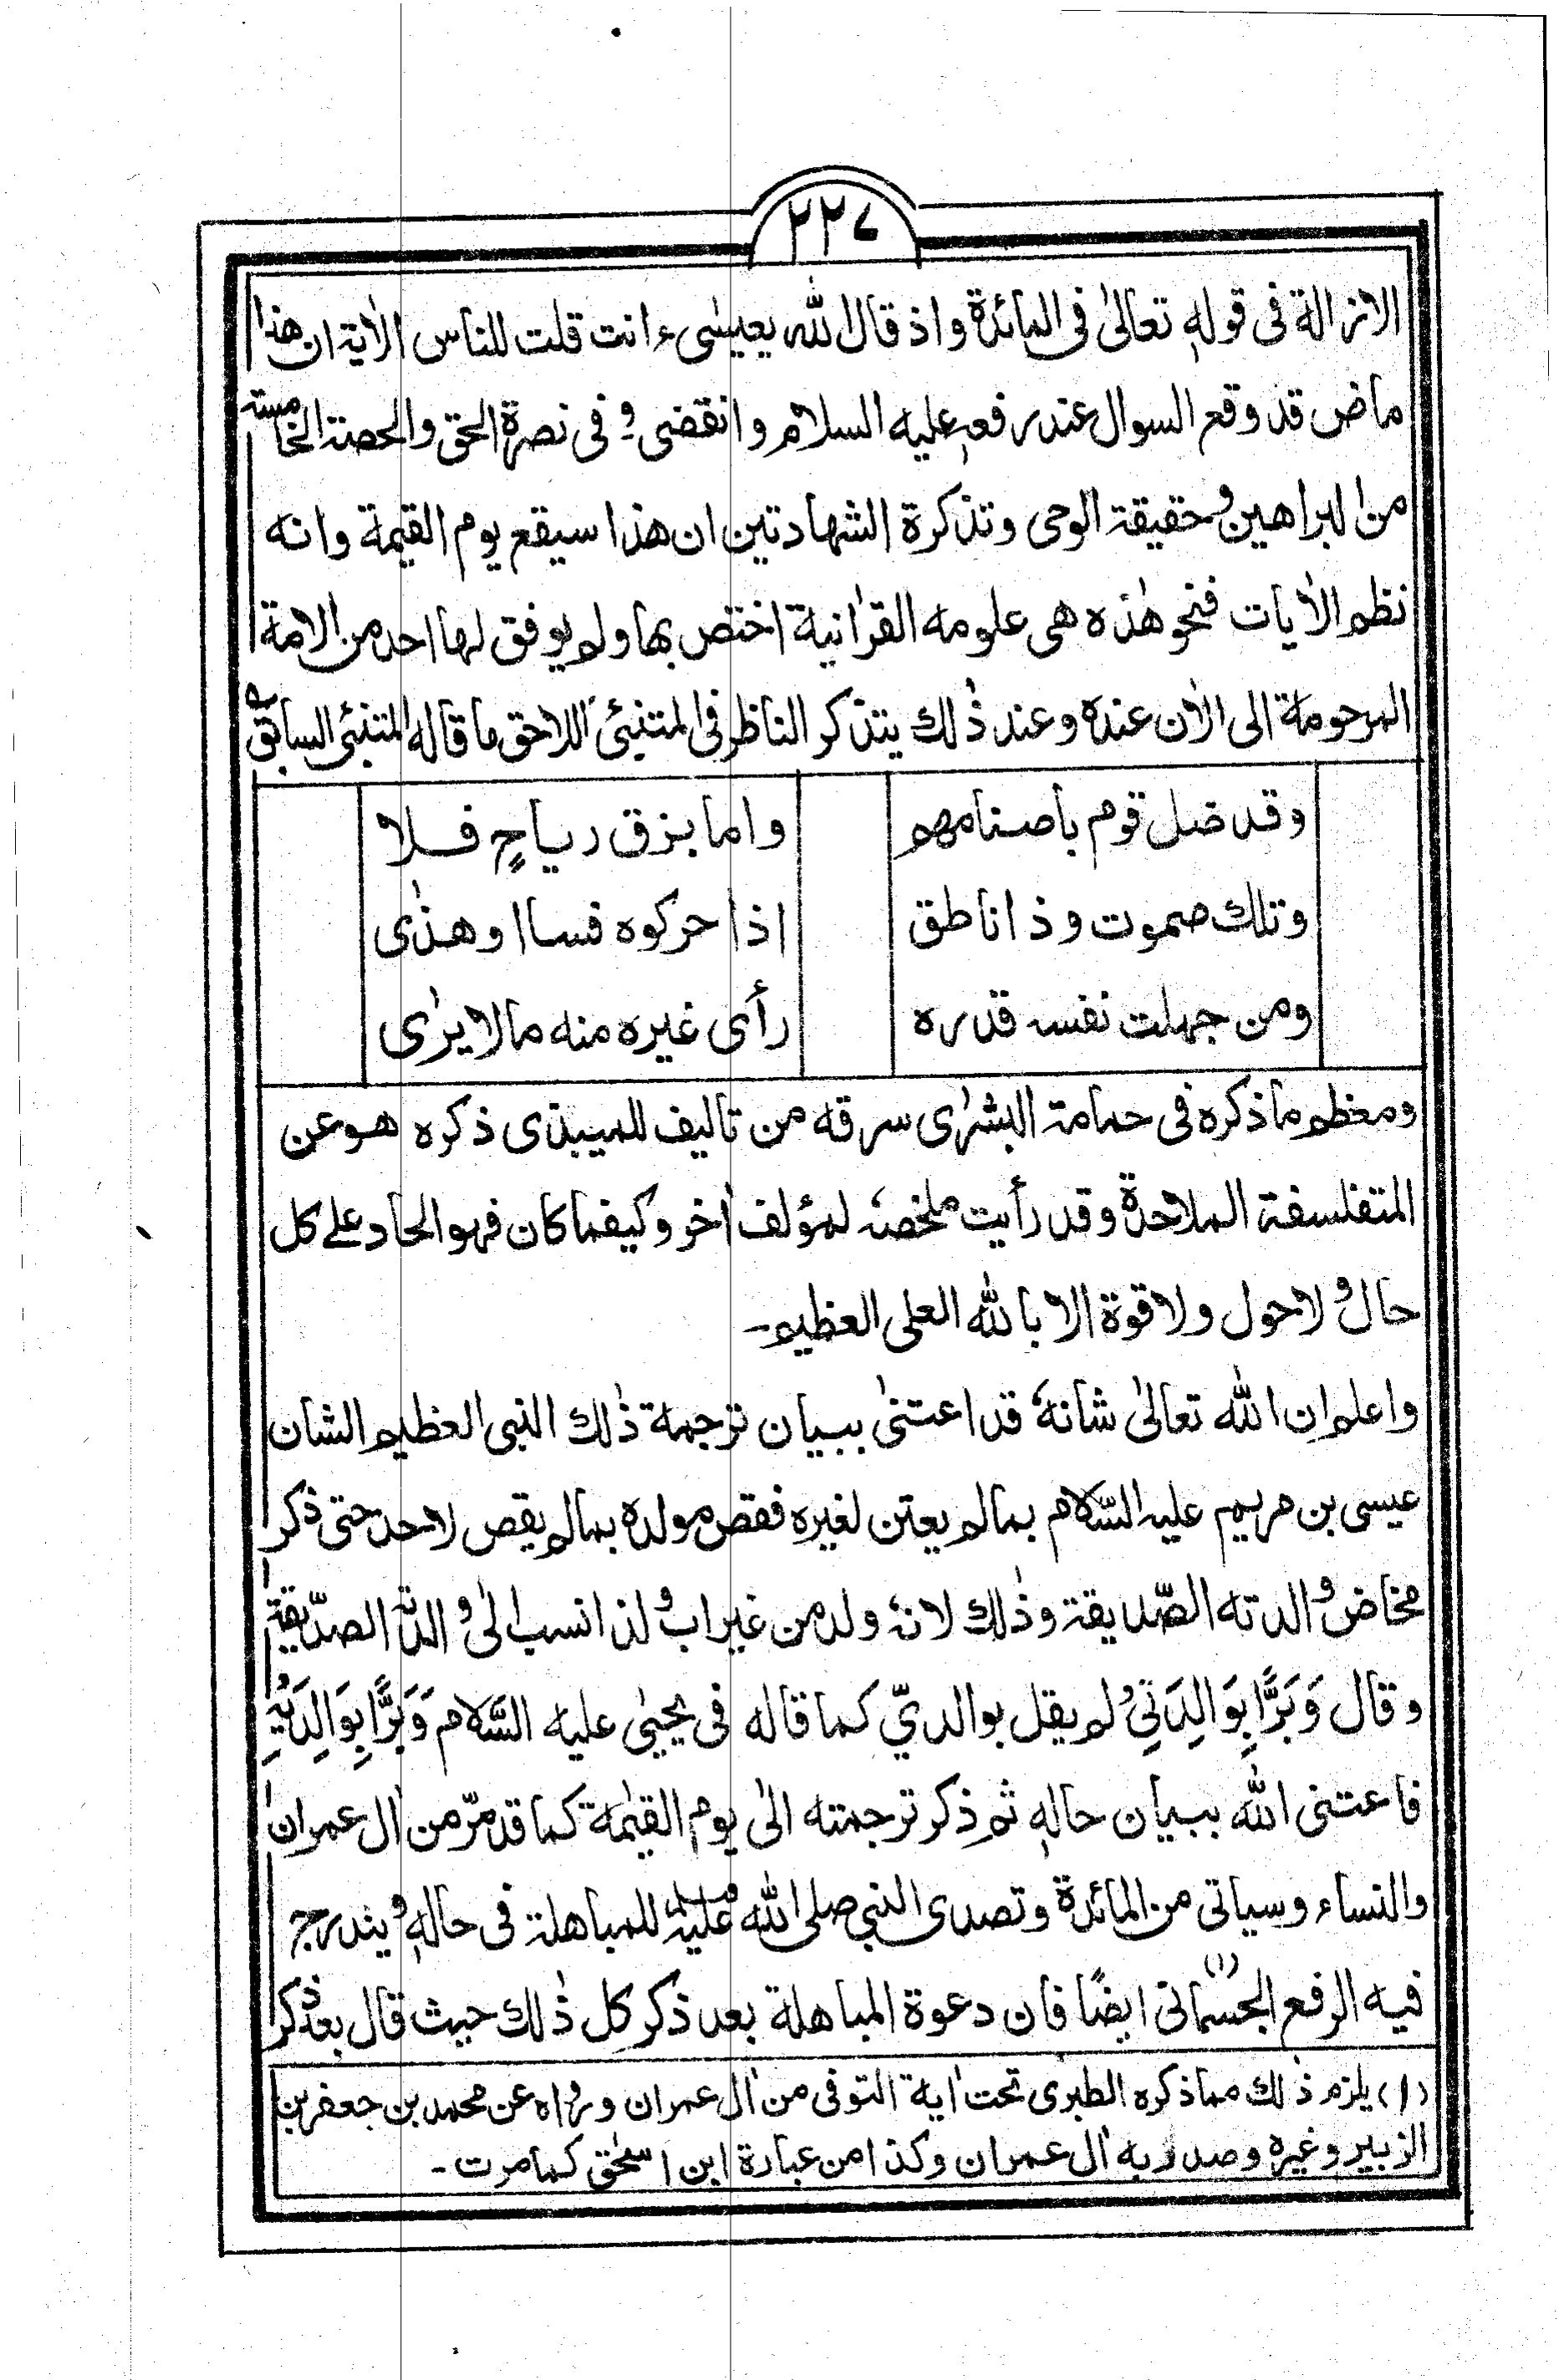 ٢٢٧
الازالة فى قولهٖ تعالىٰ فى المائدة واذ قال الله يعيسٰى ءانت قلت للناس الاٰية ان هذا
ماض قد وقع السوال عند رفعهٖ عليه السلام وانقضى و فى نصرة الحق والحصة الخامسة
من البراهين و حقيقة الوحى وتذكرة الشهادتين ان هذا سيقع يوم القيمة وانه
نظم الاٰيات فنحو هٰذه هى علومه القراٰنية اختص بها ولم يوفق لها احد من الامة
المرحومة الى الاٰن عنده وعند ذٰلك يتذكر الناظر فى المتنبئ اللاحق ما قاله المتنبئ السابق ؎
وقد ضل قوم باصنامهم واما بزق رياحٍ فلا
وتلك صموت وذا ناطق اذا حركوه فسا او هذٰى
ومن جهلت نفسه قدره رأى غيره منه مالا يرٰى
ومعظم ما ذكره فى حمامة البشرٰى سرقه من تاليف للميبذى ذكره هو عن
المتفلسفة الملاحدة وقد رأيت ملخصهٗ لمؤلف اٰخر وكيفما كان فهو الحاد علٰے كل
حال و لاحول ولا قوة الا بالله العلى العظيم۔
واعلم ان الله تعالىٰ شانهٗ قد اعتنىٰ ببيان ترجمة ذٰلك النبى العظيم الشان
عيسى بن مريم عليه السّلام بمالم يعتن لغيره فقص مولده بمالم يقص لاحد حتى ذكر
مخاض و الدته الصّديقة وذٰلك لانهٗ ولد من غير اب و لذا نسب الىٰ و الدته الصدّيقة
وقال وَبَرًّا بِوَالِدَتِىْ و لم يقل بوالدىّ كما قاله فى يحيىٰ عليه السَّلام وَبَرًّا بِوَالِدَيْهِ
فاعتنى الله ببيان حالهٖ ثم ذكر ترجمته الىٰ يوم القيٰمة كما قد مرّ من اٰل عمران
والنساء وسياتى من المائدة وتصدى النبى صلى الله عليه وسلم للمباهلة فى حالهٖ و يندرج
فيه الرفع الجسمانى (۱) ايضًا فان دعوة المباهلة بعد ذكر كل ذٰلك حيث قال بعد ذكر
(۱) يلزم ذٰلك مما ذكره الطبرى تحت اٰية التوفى من اٰل عمران و رواه عن محمد بن جعفر بن
الزبير وغيره وصدر به اٰل عمران وكذا من عبارة ابن اسحٰق كما مرت۔